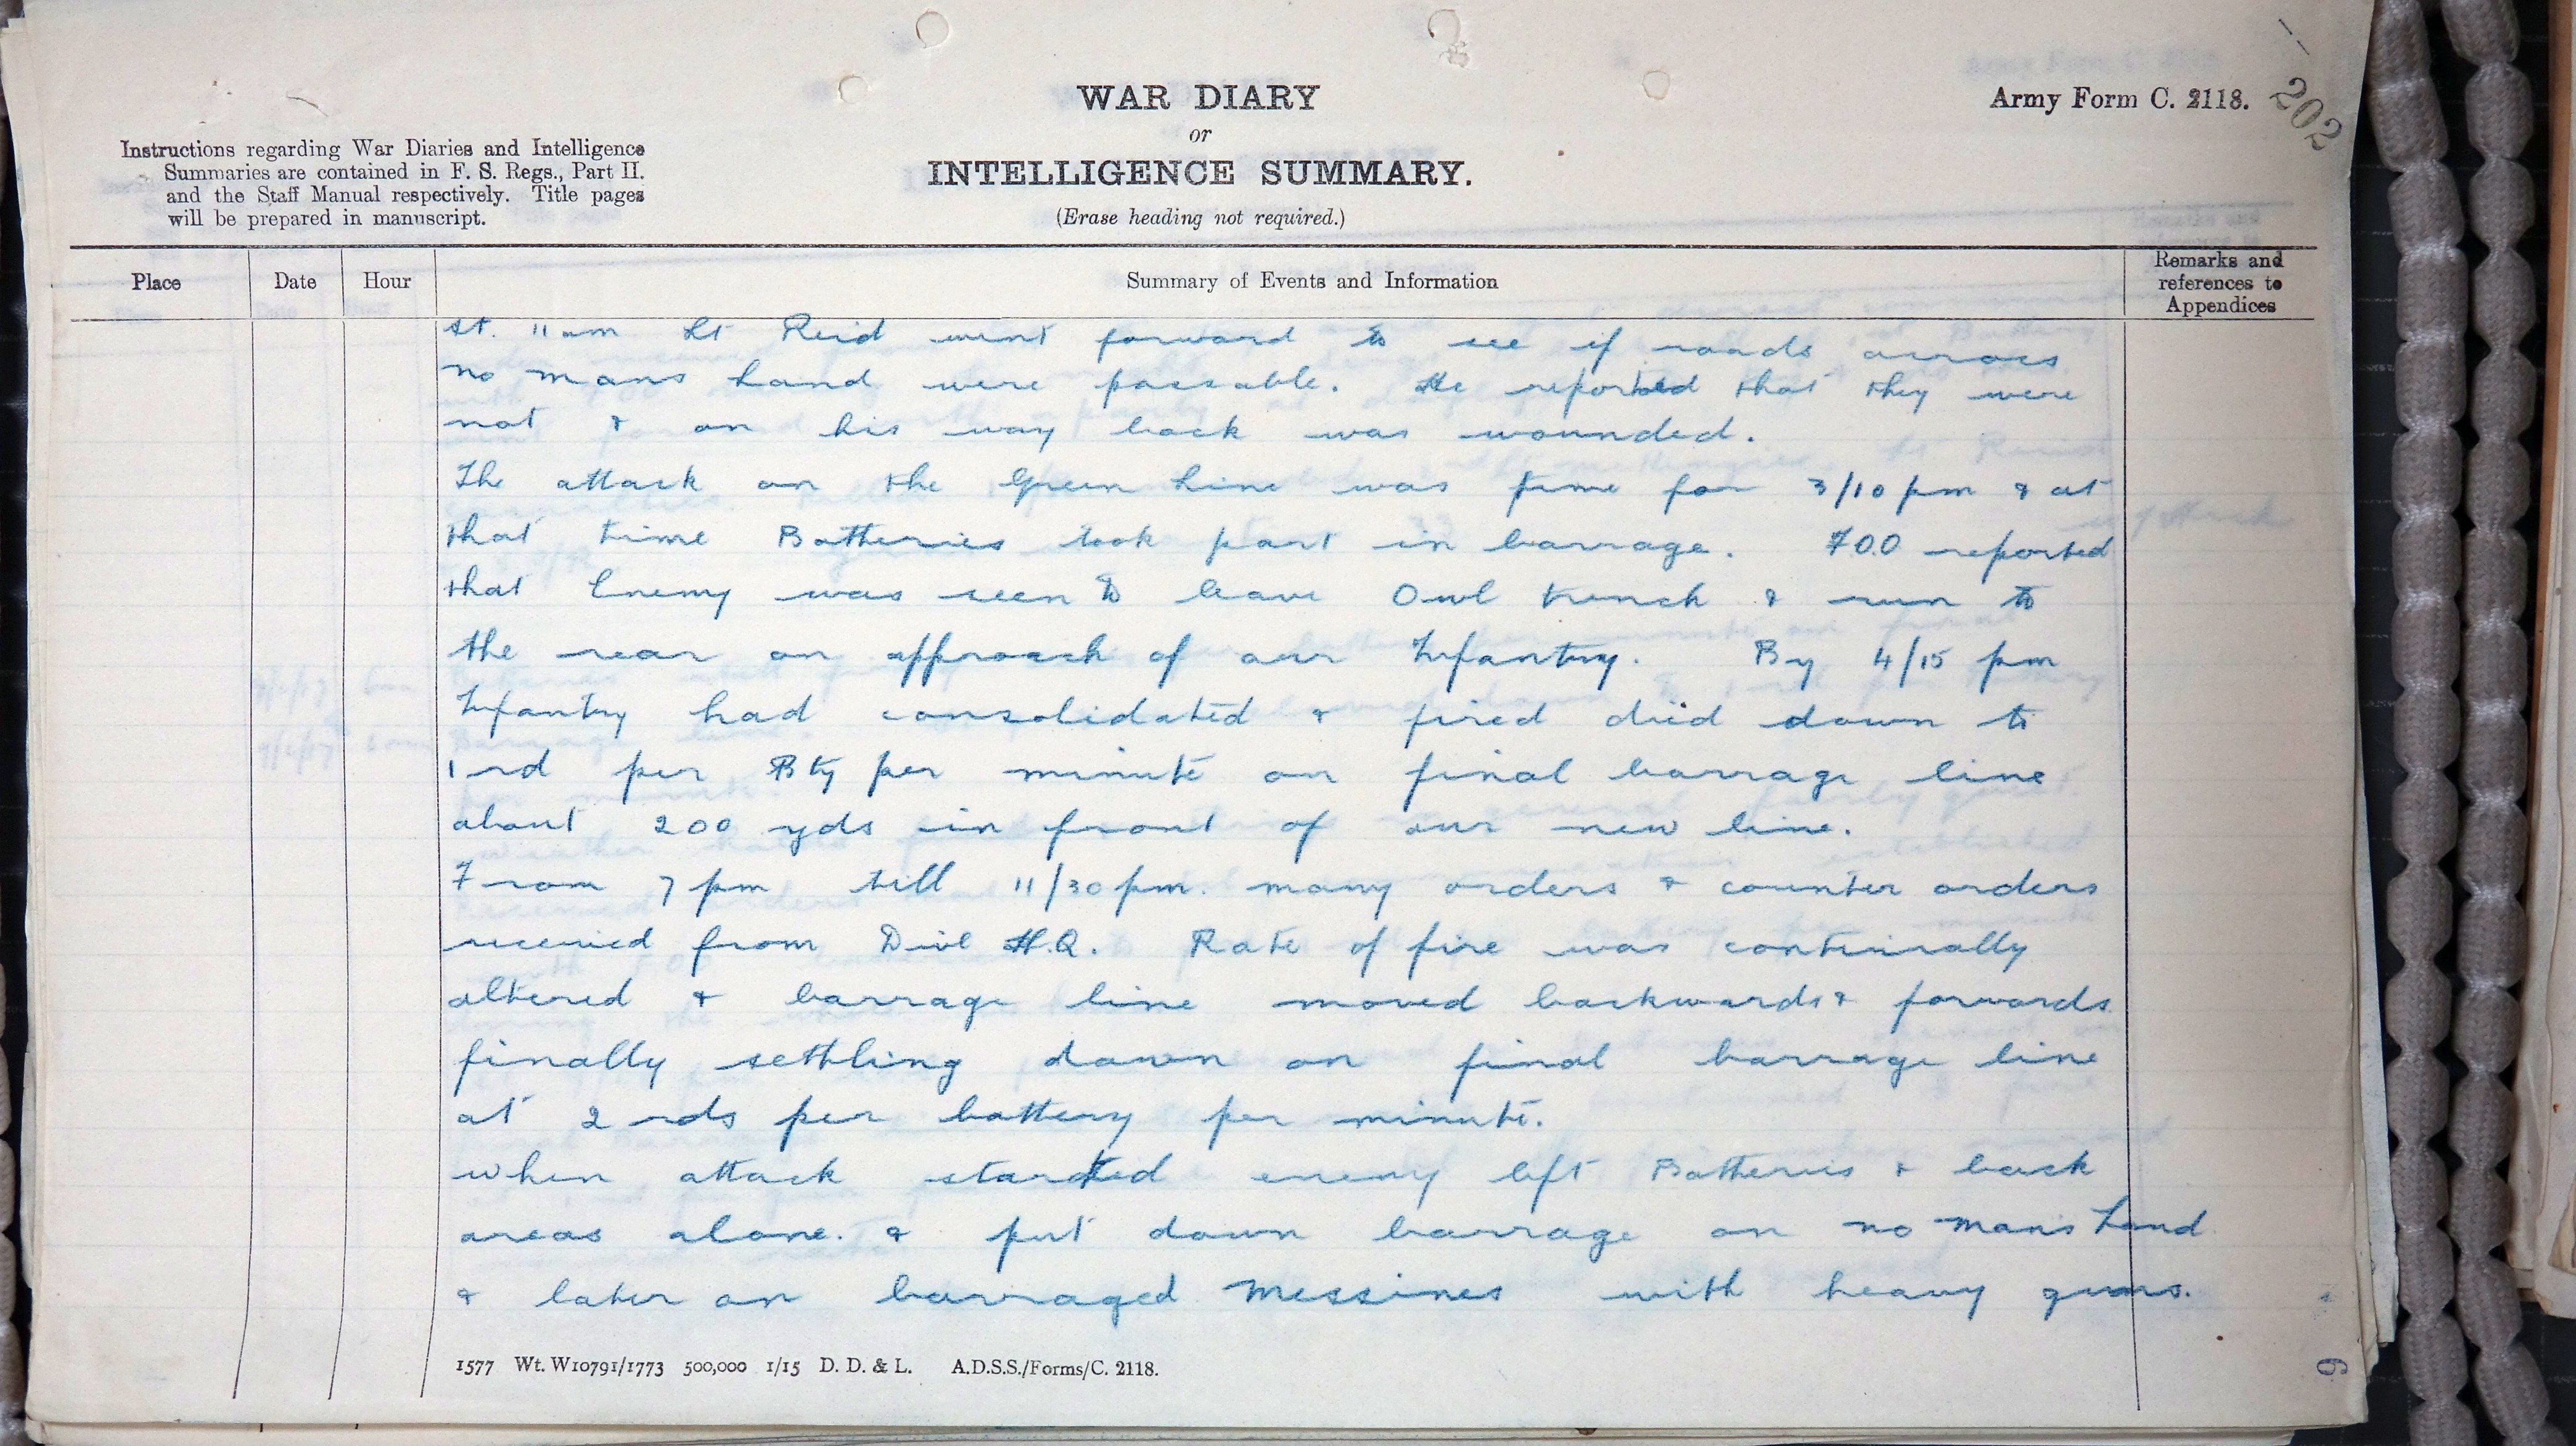 202
Army Form C. 2118.
WAR DIARY
or
INTELLIGENCE SUMMARY.
(Erase heading not required.)
Instructions regarding War Diaries and Intelligence
Summaries are contained in F. S. Regs., Part II.
and the Staff Manual respectively. Title pages
will be prepared in manuscript.
Place Date Hour Summary of Events and Information Remarks and
references to
Appendices
st. 11 am Lt Reid went forward to see if roads across
no mans Land were passable. He reported that they were
not & on his way back was wounded.
The attack on the Green Line was time for 3/10 pm & at
that time Batteries took part in barrage. FOO reported
that Enemy was seen to leave Owl trench & run to
the rear on approach of our Infantry. By 4/15 pm
Infantry had consolidated & fired died down to
1 rd per Bty per minute on final barrage line
about 200 yds in front of our new line.
From 7 pm till 11/30 pm. many orders & counter orders
received from Divl H.Q. Rate of fire was continually
altered & barrage line moved backwards & forwards
finally settling down on final barrage line
at 2 rds per battery per minute.
when attack started enemy left Batteries & back
areas alone. & put down barrage on no mans Land
& later on barraged Messines with heavy guns.
1577 Wt. W10791/1773 500,000 1/15 D. D. & L. A.D.S.S./Forms/C. 2118.